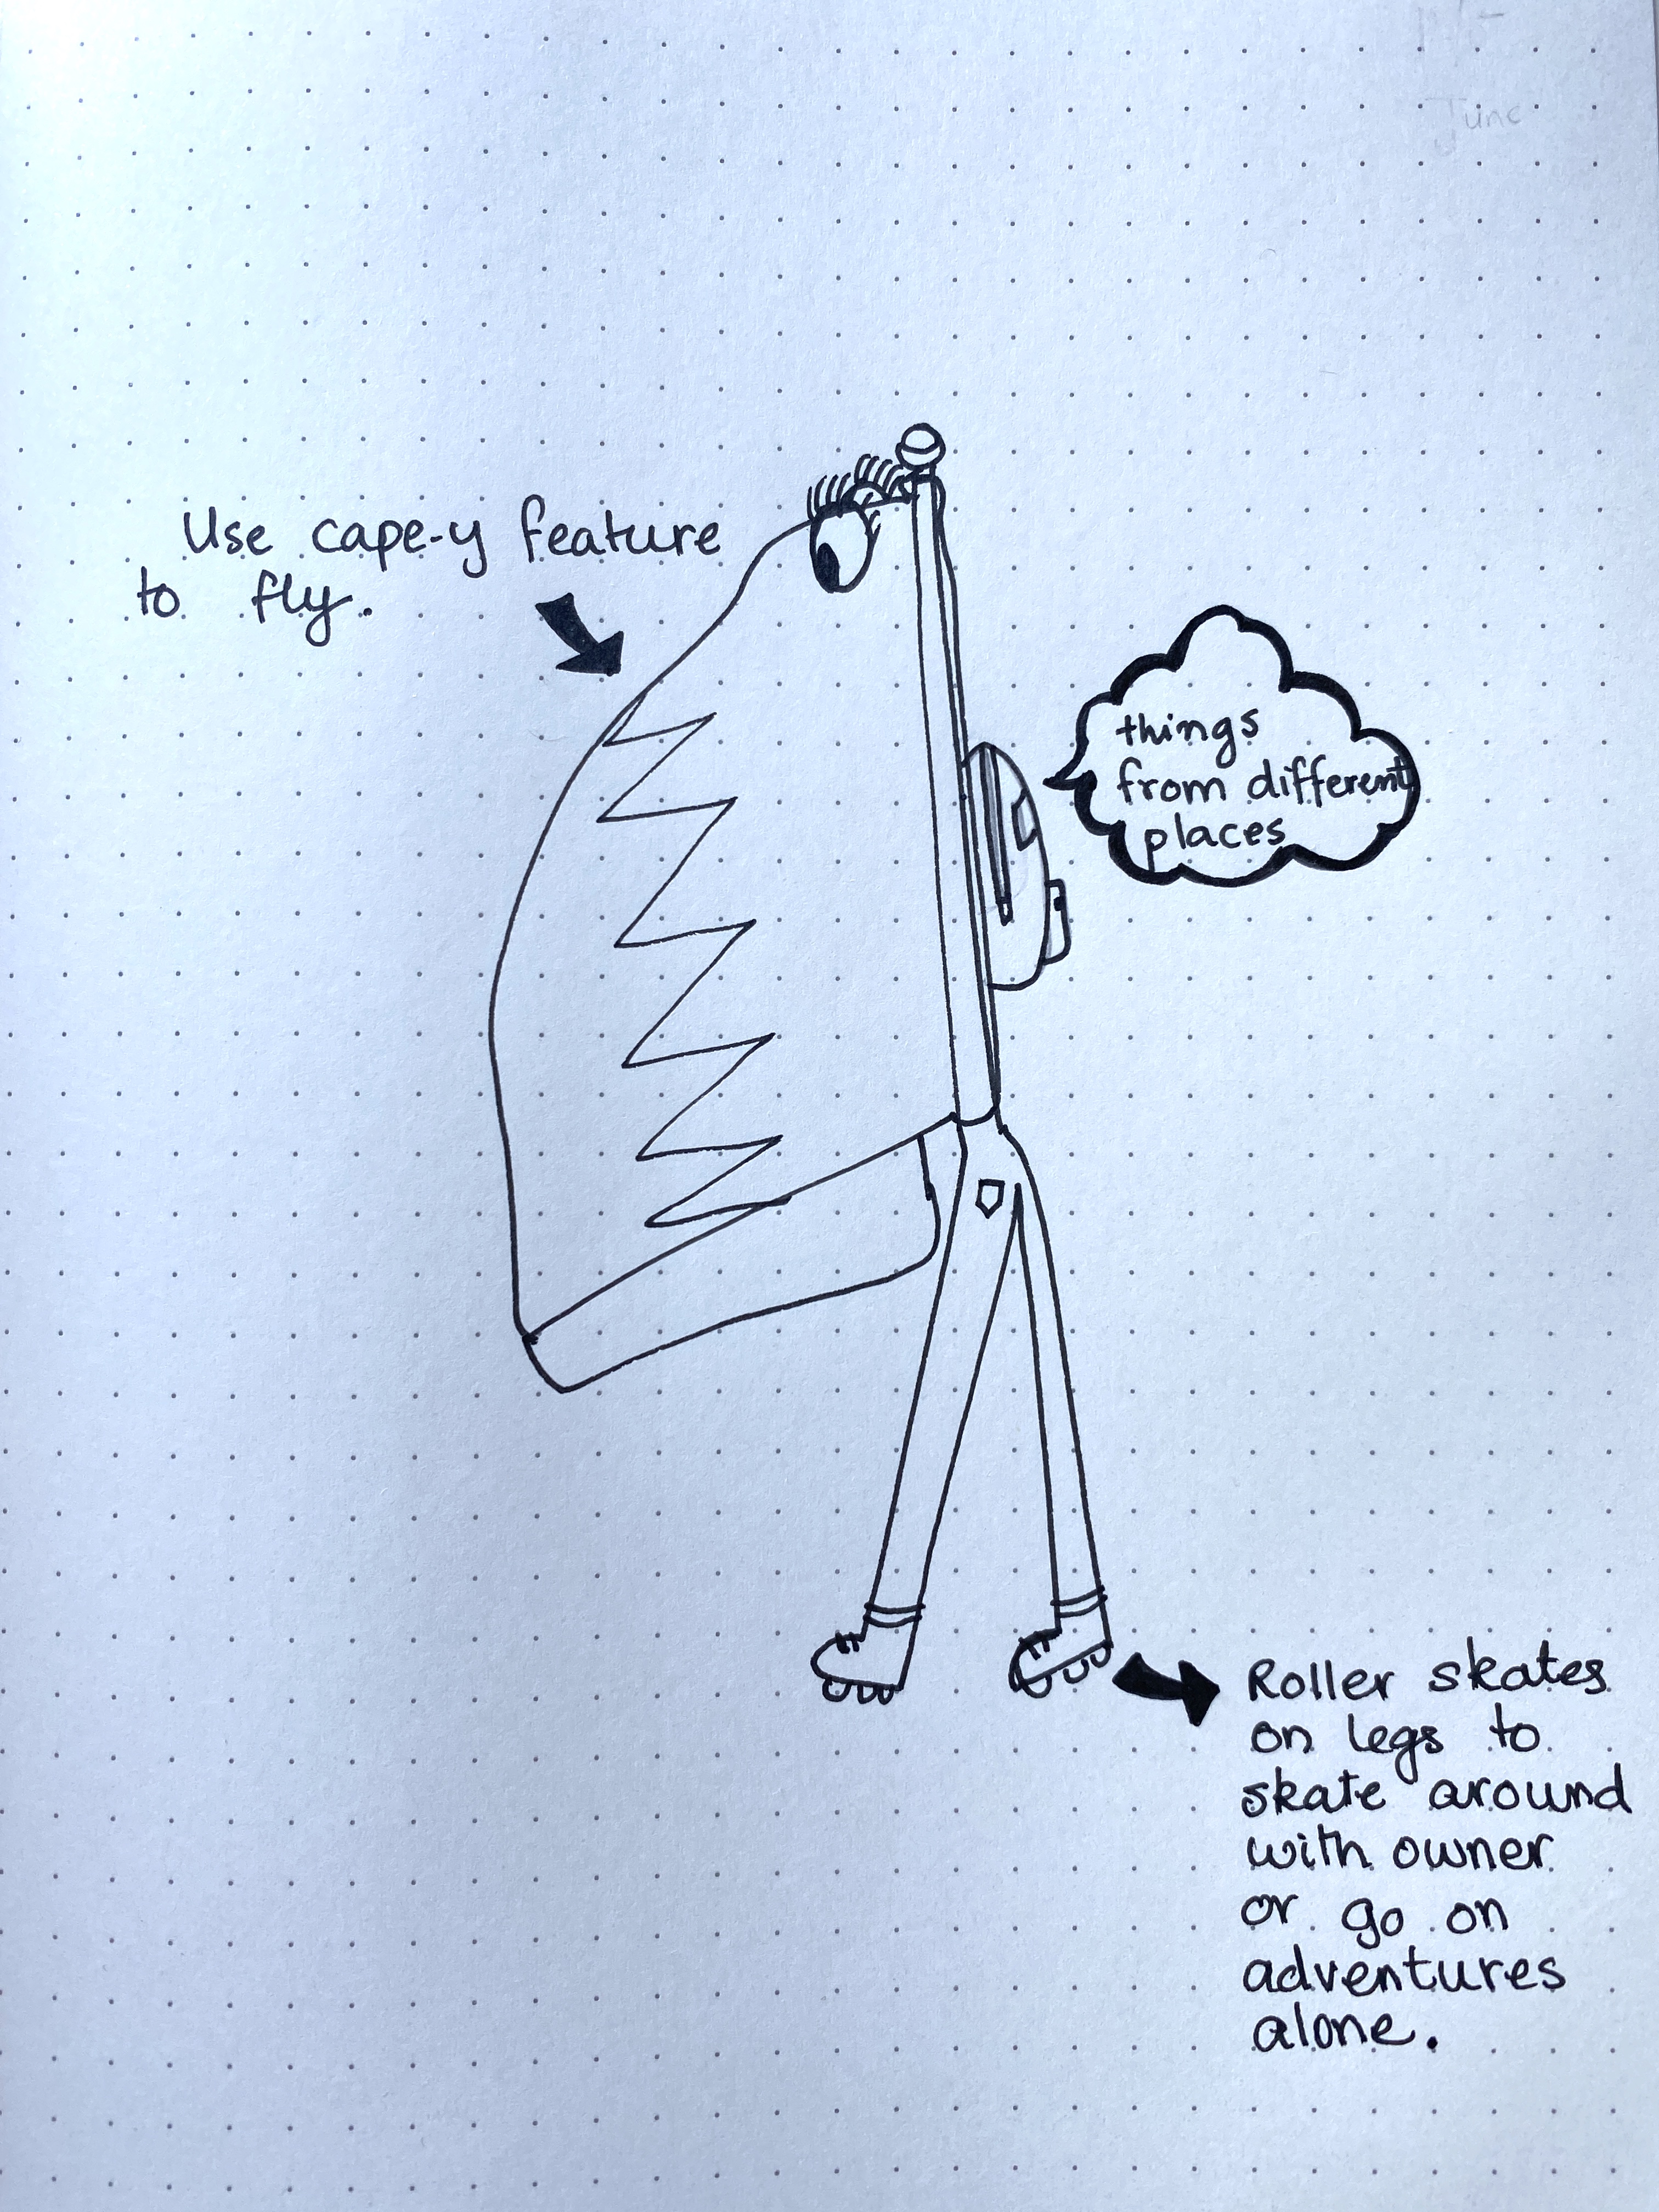 June
Use cape-y feature
to fly.
things
from different
places
Roller skates
on legs to
skate around
with owner
or go on
adventures
alone.